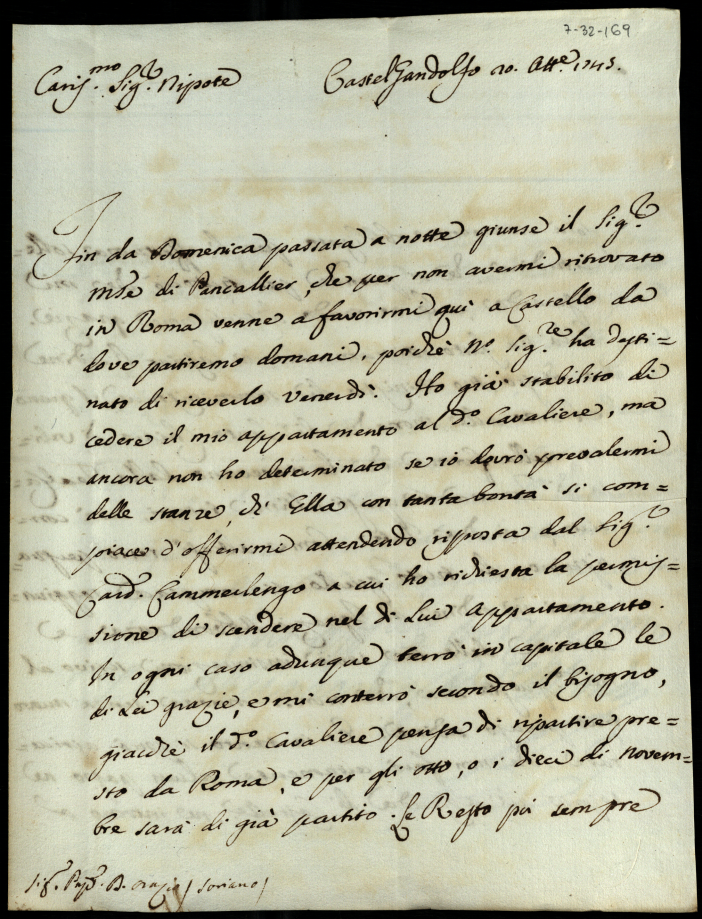 7-32-169
Cariss.mo Sig.r Nipote
Castel Gandolfo 20. Ott.e 1745.
Fin da Domenica passata a notte giunse il Sig.r
Mse di Pancallier, che per non avermi ritrovato
in Roma venne a favorirmi quì a Castello da
dove partiremo domani, poichè N.o Sig.re ha desti=
nato di riceverlo Venerdì. Ho già stabilito di
cedere il mio appartamento al d.o Cavaliere, ma
ancora non ho determinato se io dovrò prevalermi
delle stanze, ch' Ella con tanta bontà si com=
piace d'offerirmi attendendo risposta dal Sig.r
Card. Cammerlengo a cui ho richiesta la permis=
sione di scendere nel di Lui Appartamento.
In ogni caso adunque terrò in capitale le
di Lei grazie, e mi conterrò secondo il bisogno,
giacchè il d.o Cavaliere pensa di ripartire pre=
sto da Roma, e per gli otto, o i dieci di novem=
bre sarà di già partito. Le Resto più sempre
Sig.r D. Orazio / Soriano /